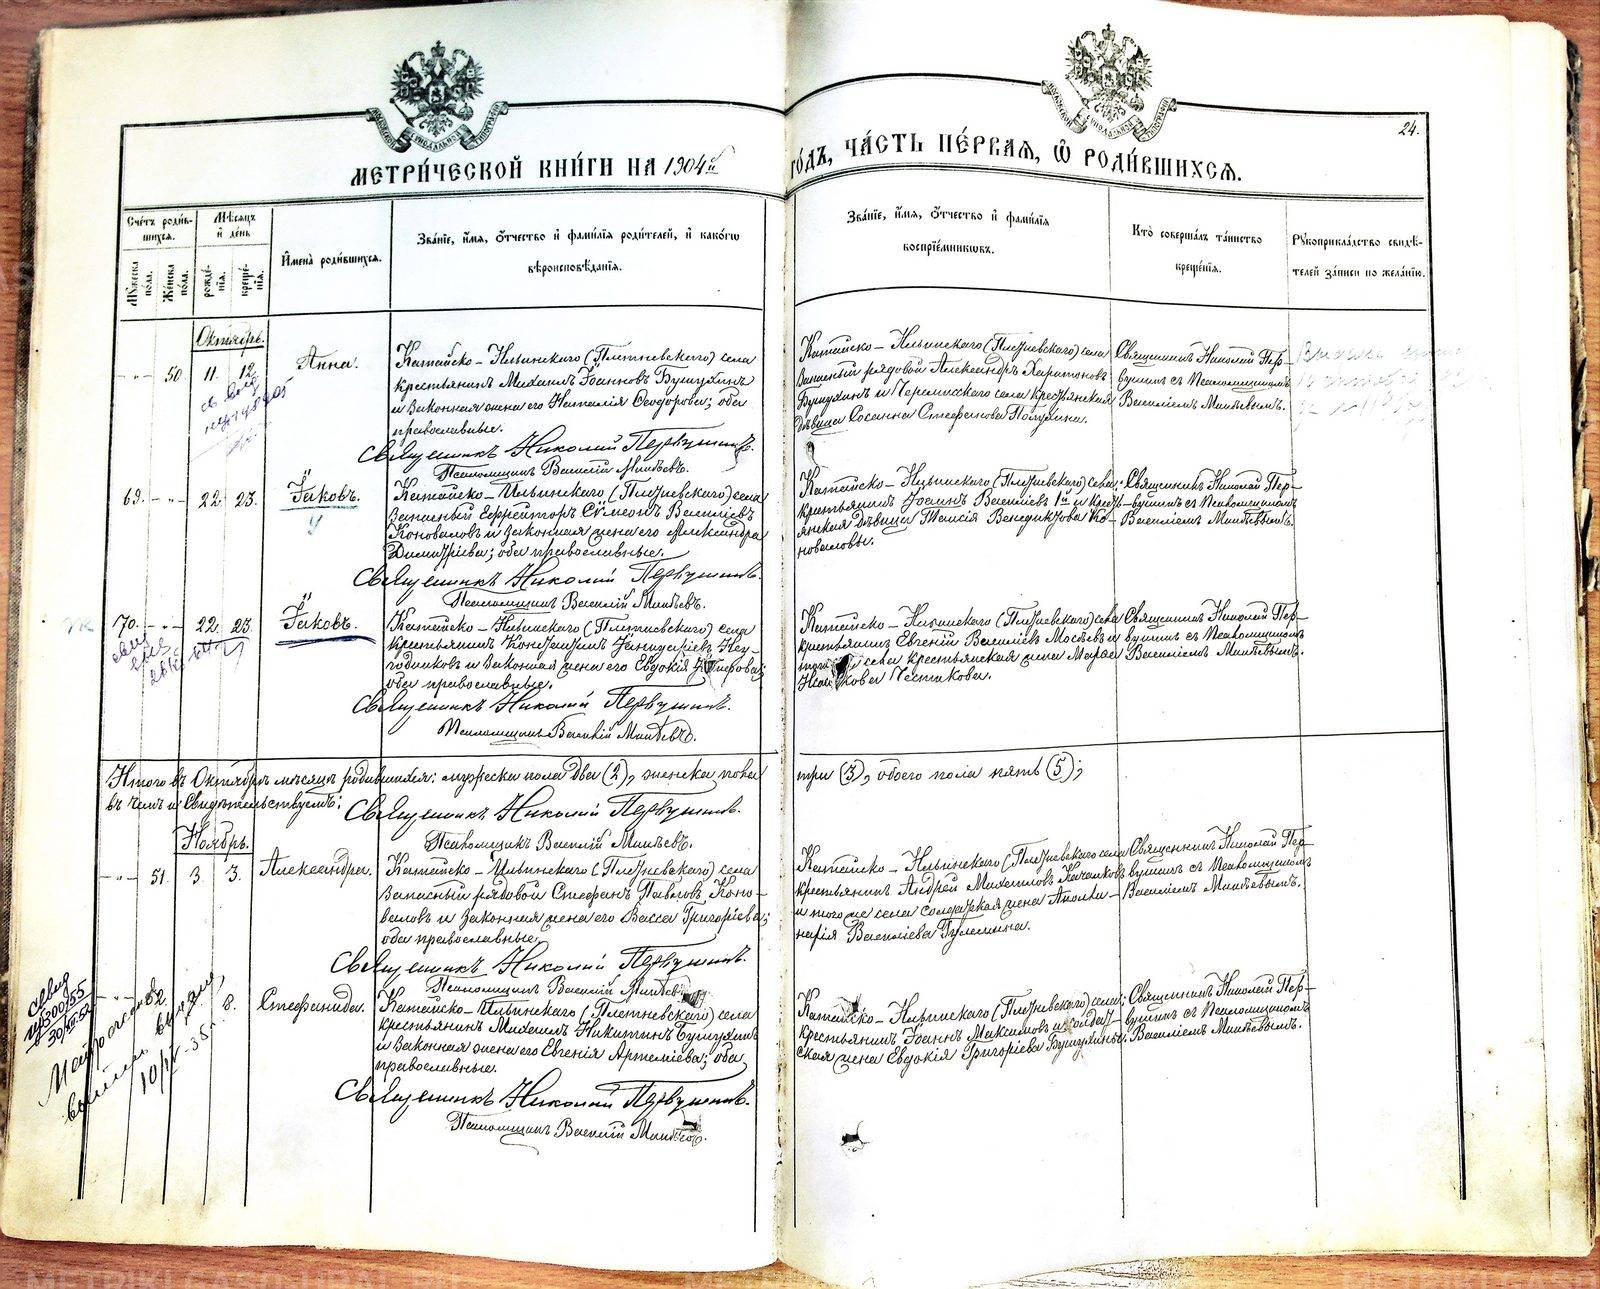 МЕТРИ́ЧЕСКОЙ КНИ́ГИ НА 1904й
ГО́ДЪ, ЧА́СТЬ ПЕ́РВАЯ, Ѽ РОДИ́ВШИХСЯ.
24.
Сче́тъ роди́в-
шихся.
Мѣ́сяцъ
и҆ де́нь
И҆мена̀ роди́вшихся.
Зва́нїе, и҆́мя, ѻ҆́тчество и҆ фами́лїя роди́телей, и҆ како́гѡ
вѣроисповѣ́данїя.
Му́жеска
по́ла.
Же́нска
по́ла.
рожде́-
нїя.
креще́-
нїя.
Зва́нїе, и҆́мя, ѻ҆́тчество и҆ фами́лїя
воспрїе́мниковъ.
Кто̀ соверша́лъ та́инство
креще́нїя.
Рꙋкоприкла́дство свидѣ́-
телей за́писи по жела́нїю.
Октябрь.
- „ - 50 11. 12. Анна.
Катайско-Ильинскаго (Плетневскаго) села
крестьянинъ Михаилъ Іоанновъ Бушухинъ
и законная жена его Наталія Ѳеодорова; оба
православные.
Священникъ Николай Первушинъ.
Псаломщикъ Василій Маитѣевъ.
Катайско-Ильинскаго (Плетневскаго) села
запасный рядовой Александръ Харитоновъ
Бушухинъ и Черемисскаго села крестьянская
дѣвица Сосанна Стефанова Полухина.
Священникъ Николай Пер-
вушинъ съ Псаломщикомъ
Василіемъ Маитѣевымъ.
69. - „ - 22. 23. Іаковъ.
Катайско-Ильинскаго (Плетневскаго) села
запасный Ефрейторъ Сѵмеонъ Василіевъ
Коноваловъ и законная жена его Александра
Димитріева; оба православные.
Священникъ Николай Первушинъ.
Псаломщикъ Василій Маитѣевъ.
Катайско-Ильинскаго (Плетневскаго) села;
крестьянинъ Іоаннъ Василіевъ 1й и кресть-
янская дѣвица Таисія Венедиктова Ко-
новаловы.
Священникъ Николай Пер-
вушинъ съ Псаломщикомъ
Василіемъ Маитѣевымъ.
70. - „ - 22. 23. Іаковъ.
Катайско-Ильинскаго (Плетневскаго) села
крестьянинъ Константинъ Іаннуаріевъ
и законная жена его Евдокія
оба православные.
Священникъ Николай Первушинъ.
Псаломщикъ Василій Маитѣевъ.
Катайско-Ильинскаго (Плетневскаго) села
крестьянинъ Евгеній Василіевъ и
села крестьянская жена Марѳа
Священникъ Николай Пер-
вушинъ съ Псаломщикомъ
Василіемъ Маитѣевымъ.
Итого въ Октябрѣ мѣсяцѣ родившихся: мужеска пола два (2), женска пола
три (3), обоего пола пять (5);
въ чемъ и свидѣтельствуемъ:
Священникъ Николай Первушинъ.
Псаломщикъ Василій Маитѣевъ.
Ноябрь.
- „ - 51. 3. 3. Александра.
Катайско-Ильинскаго (Плетневскаго) села
запасный рядовой Стефанъ Павловъ Коно-
валовъ и законная жена его Васса Григоріева;
оба православные.
Священникъ Николай Первушинъ.
Псаломщикъ Василій
Катайско-Ильинскаго (Плетневскаго) села
крестьянинъ Андрей Михаиловъ Качалковъ
и того же села солдатская жена Аполли-
нарія Василіева
Священникъ Николай Пер-
вушинъ съ Псаломщикомъ
Василіемъ Маитѣевымъ.
52. 8. Стефанида.
Катайско-Ильинскаго (Плетневскаго) села
крестьянинъ Михаилъ Никитинъ Бушухинъ
и законная жена его Евгенія Артеміева; оба
православные.
Священникъ Николай Первушинъ.
Псаломщикъ Василій
Катайско-Ильинскаго (Плетневскаго) села;
крестьянинъ Іоаннъ Максимовъ и солдат-
ская жена Евдокія Григоріева Бушухины.
Священникъ Николай Пер-
вушинъ съ Псаломщикомъ
Василіемъ Маитѣевымъ.